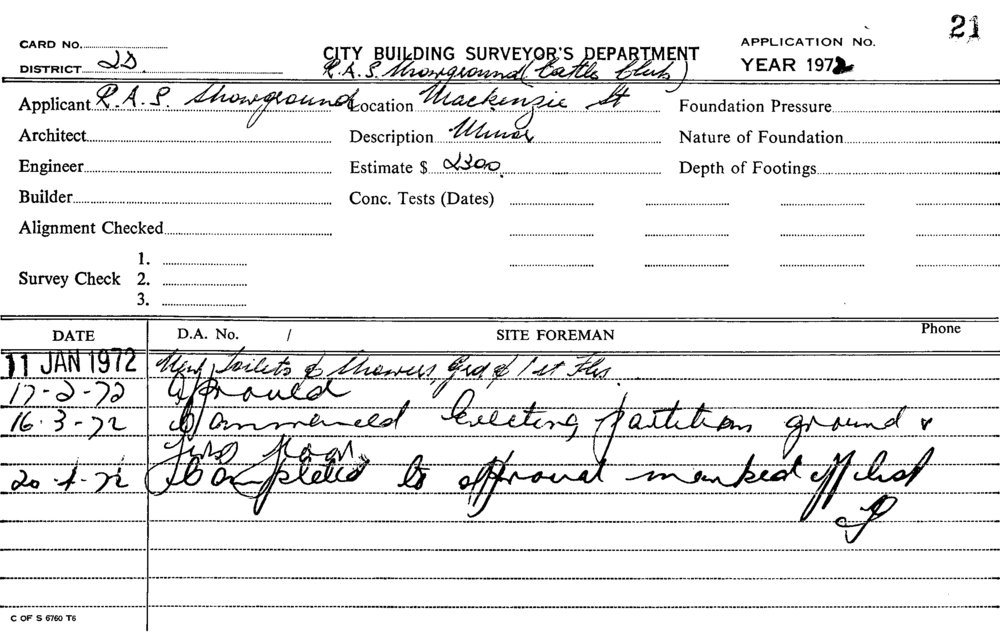 21
CARD No.
DISTRICT 2D.
CITY BUILDING SURVEYOR'S DEPARTMENT
R.A.S. Showground (Cattle Club)
APPLICATION No.
YEAR 1972
Applicant R.A.S. Showground Location Mackenzie St Foundation Pressure
Architect Description Minor Nature of Foundation
Engineer Estimate $ 2300. Depth of Footings
Builder Conc. Tests (Dates)
Alignment Checked
1.
Survey Check 2.
3.
DATE D.A. No. / SITE FOREMAN Phone
11 JAN 1972 New Toilets & Showers, Grd & 1st Flrs.
17-2-72 Approved
16.3-72 Commenced Erecting partition ground &
first floor
20.4.72 Completed to approval marked off list
C OF S 6760 T6